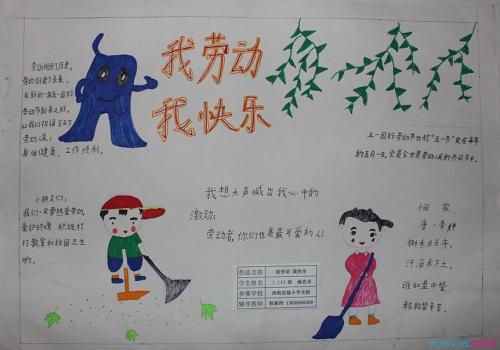 我劳动
我快乐
劳动创造了历史,
劳动创造了未来。
在新的一年五一国际
劳动节到来之际,
让我们祝福全天下
劳动人民:
身体健康、工作顺利。
五一国际劳动节也称"五一节"定在每年
的五月一日。它是全世界劳动人民的共同节日。
小朋友们:
我们一定要热爱劳动,
爱护环境 积极打
扫教室和校园卫生
哟。
我想大声喊出我心中的
激动:
劳动者,你们也是最可爱的人!
悯 农
唐·李绅
锄禾日当午,
汗滴禾下土。
谁知盘中餐
粒粒皆辛苦。
作品名称 我劳动 我快乐
学生姓名 二(1)班
参赛学校 西街实验小学北校
辅导教师